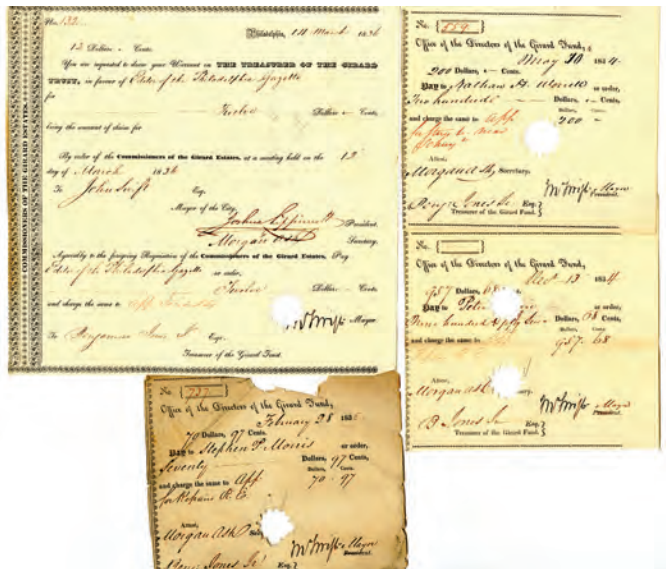 COMMISSIONERS OF THE GIRARD ESTATES.
No. 132.
Philadelphia, 14 March 1836
12 Dollars - Cents.
You are requested to draw your Warrant on THE TREASURER OF THE GIRARD
TRUST, in favour of Editor of the Philadelphia Gazette
for
Twelve Dollars - Cents,
being the amount of claim for
By order of the Commissioners of the Girard Estates, at a meeting held on the 12
day of March 1836
To John Swift Esq.
Mayor of the City.
President.
Morgan Ash Secretary.
Agreeably to the foregoing Requisition of the Commissioners of the Girard Estates, Pay
Editor of the Philadelphia Gazette or order,
Twelve Dollars - Cents
and charge the same to
Mayor
To Benjamin Jones Jr Esqr.
Treasurer of the Girard Trust.
No. [559]
Office of the Directors of the Girard Fund,
May 30 1834.
200 Dollars, - Cents.
Pay to Nathan H. or order,
Two hundred Dollars, - Cents,
Dollars, Cents
and charge the same to App 200 -
for
Attest,
Morgan Ash, Secretary.
Mayor
President.
Jones Jr Esq. }
Treasurer of the Girard Fund. }
No. [ ]
Office of the Directors of the Girard Fund,
13 1834
957 Dollars, 68
Pay to Peter or order,
Nine hundred & fifty Seven Dollars, 68 Cents,
Dollars, Cents
and charge the same to 957. 68
Attest,
Morgan Ash
Mayor
President.
B Jones Jr Esq. }
Treasurer of the Girard Fund. }
No. [737]
Office of the Directors of the Girard Fund,
February 28 183
70 Dollars, 97 Cents.
Pay to Stephen P. Morris or order,
Seventy Dollars, 97 Cents,
Dollars, Cents
and charge the same to App 70 . 97
for Repairs R. E.
Attest,
Morgan Ash
Mayor
President.
Jones Jr Esq. }